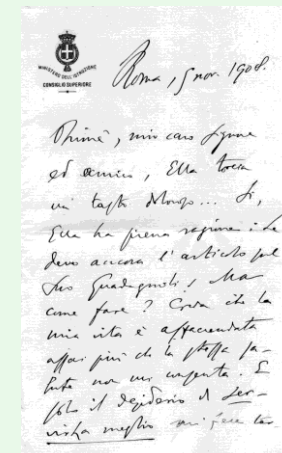 MINISTERO DELL'ISTRUZIONE
CONSIGLIO SUPERIORE
Roma, 5 nov. 1908.
Ohimè, mio caro Signore
ed amico, Ella tocca
un tasto ... Sì,
Ella ha piena ragione: Le
devo ancora l'articolo sul
Suo Guadagnoli, Ma
come fare? Creda che la
mia vita è affaccendata
assai più che la stessa sa-
lute non mi consenta. E
solo il desiderio di ser-
virla meglio mi fece tar